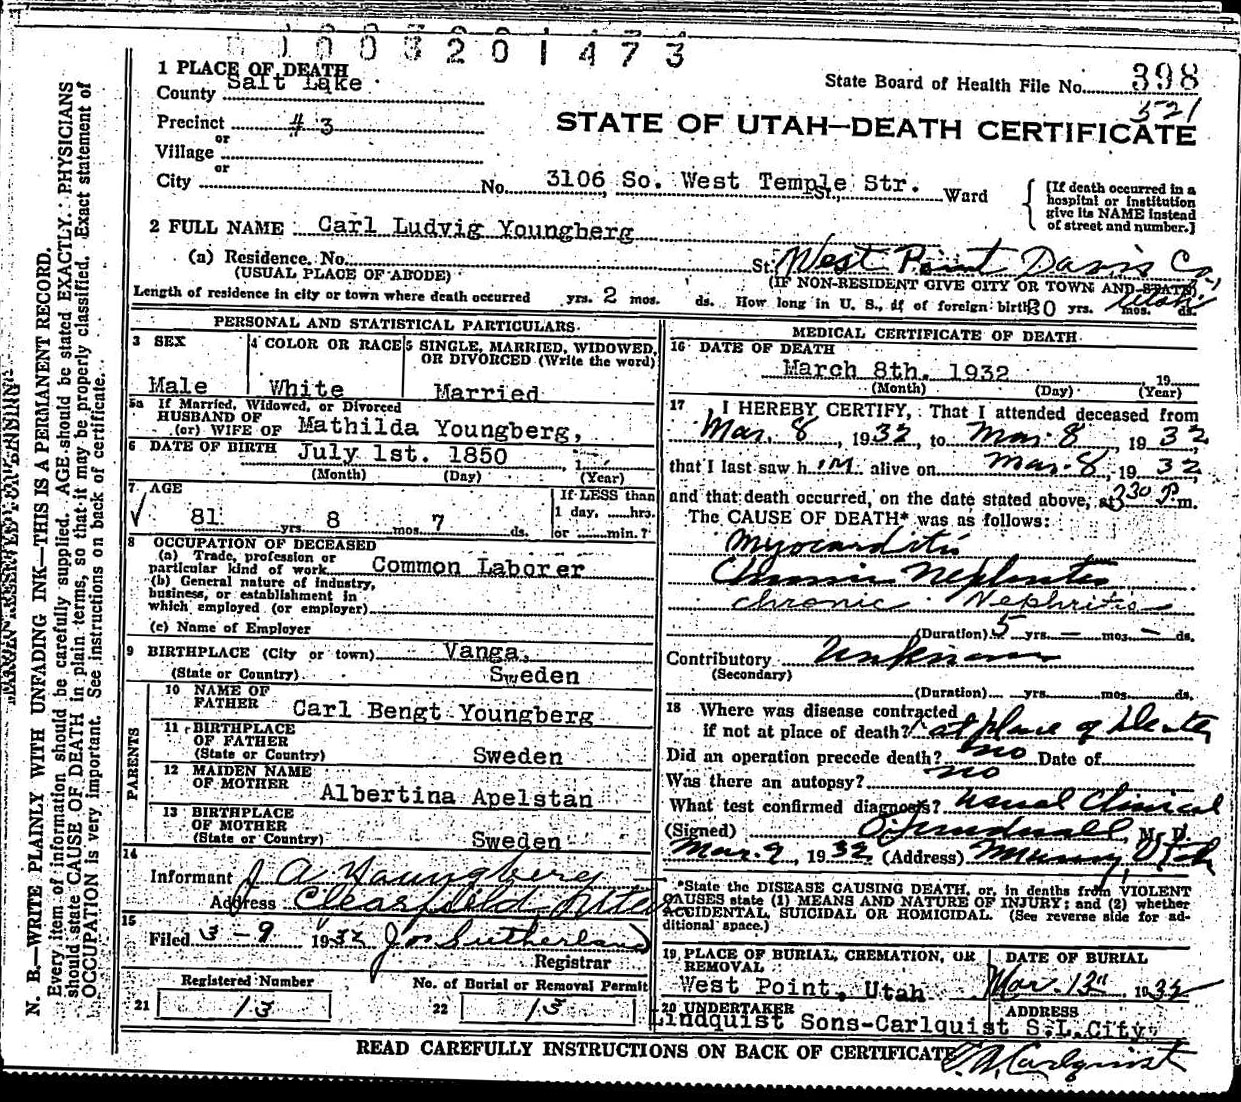 01003201473
1 PLACE OF DEATH
County Salt Lake
State Board of Health File No. 398
521
Precinct #3
or
STATE OF UTAH—DEATH CERTIFICATE
Village
or
City No. 3106 So. West Temple Str. St., Ward
[If death occurred in a hospital or institution give its NAME instead of street and number.]
2 FULL NAME Carl Ludvig Youngberg
(a) Residence. No. St. West Point Davis Co.,
(USUAL PLACE OF ABODE) (IF NON-RESIDENT GIVE CITY OR TOWN AND STATE) Utah
Length of residence in city or town where death occurred yrs. 2 mos. ds. How long in U. S., if of foreign birth? 30 yrs. mos. ds.
PERSONAL AND STATISTICAL PARTICULARS
3 SEX
Male
4 COLOR OR RACE
White
5 SINGLE, MARRIED, WIDOWED, OR DIVORCED (Write the word)
Married
5a If Married, Widowed, or Divorced
HUSBAND OF
(or) WIFE OF Mathilda Youngberg,
6 DATE OF BIRTH July 1st. 1850, 1
(Month) (Day) (Year)
7 AGE
81 yrs. 8 mos. 7 ds.
If LESS than
1 day, hrs.
or min.?
8 OCCUPATION OF DECEASED
(a) Trade, profession or
particular kind of work Common Laborer
(b) General nature of industry,
business, or establishment in
which employed (or employer)
(c) Name of Employer
9 BIRTHPLACE (City or town) Vanga,
(State or Country) Sweden
PARENTS
10 NAME OF
FATHER Carl Bengt Youngberg
11 BIRTHPLACE
OF FATHER
(State or Country) Sweden
12 MAIDEN NAME
OF MOTHER Albertina Apelstan
13 BIRTHPLACE
OF MOTHER
(State or Country) Sweden
14
Informant J A Youngberg
Address Clearfield, Utah
15
Filed 3-9 1932 Jos Sutherland
Registrar
Registered Number
21 13
No. of Burial or Removal Permit
22 13
MEDICAL CERTIFICATE OF DEATH
16 DATE OF DEATH
March 8th. 1932 19
(Month) (Day) (Year)
17 I HEREBY CERTIFY, That I attended deceased from
Mar. 8, 1932, to Mar. 8, 1932,
that I last saw him alive on Mar. 8, 1932,
and that death occurred, on the date stated above, at 330 P.m.
The CAUSE OF DEATH* was as follows:
Myocarditis
Chronic Nephritis
chronic Nephritis
(Duration) 5 yrs. — mos. — ds.
Contributory Unknown
(Secondary)
(Duration) yrs. mos. ds.
18 Where was disease contracted
if not at place of death? at place of Death
Did an operation precede death? no Date of
Was there an autopsy? no
What test confirmed diagnosis? usual Clinical
(Signed) M. D.
Mar. 9, 1932 (Address) Murray, Utah
*State the DISEASE CAUSING DEATH, or, in deaths from VIOLENT
CAUSES state (1) MEANS AND NATURE OF INJURY; and (2) whether
ACCIDENTAL, SUICIDAL OR HOMICIDAL. (See reverse side for ad-
ditional space.)
19 PLACE OF BURIAL, CREMATION, OR
REMOVAL
West Point, Utah
DATE OF BURIAL
Mar. 12" 1932
20 UNDERTAKER
ADDRESS
Lindquist Sons-Carlquist S.L.City
READ CAREFULLY INSTRUCTIONS ON BACK OF CERTIFICATE
Carlquist
MARGIN RESERVED FOR BINDING
N. B.—WRITE PLAINLY WITH UNFADING INK—THIS IS A PERMANENT RECORD.
Every item of information should be carefully supplied. AGE should be stated EXACTLY. PHYSICIANS
should state CAUSE OF DEATH in plain terms, so that it may be properly classified. Exact statement of
OCCUPATION is very important. See instructions on back of certificate.